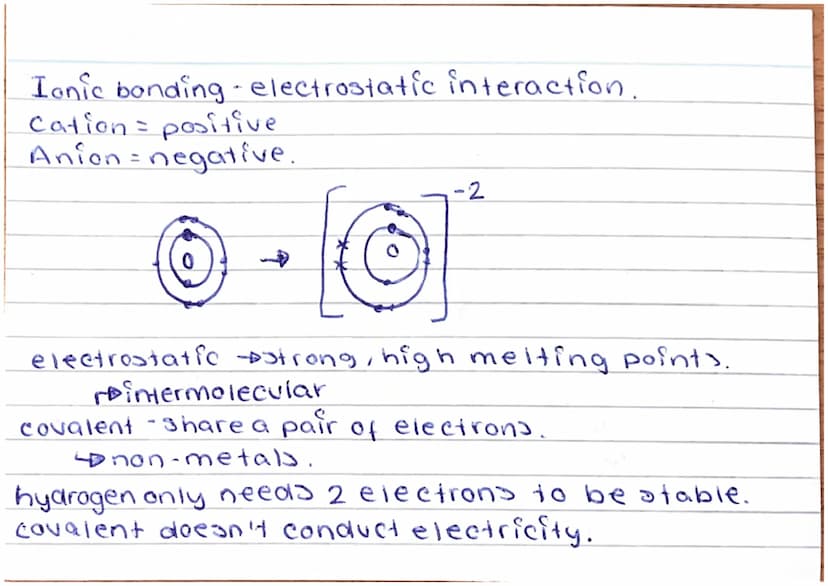 Ionic bonding - electrostatic interaction.
Cation = positive
Anion = negative.
-2
O
O
electrostatic → strong, high melting points.
↱ intermolecular
covalent - share a pair of electrons.
↳ non-metals.
hydrogen only needs 2 electrons to be stable.
covalent doesn't conduct electricity.